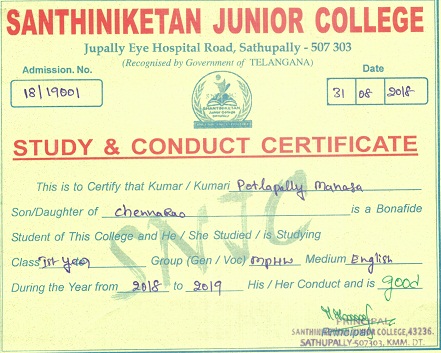 SANTHINIKETAN JUNIOR COLLEGE
Jupally Eye Hospital Road, Sathupally - 507 303
(Recognised by Government of TELANGANA)
Admission. No.
Date
18/19001
31 08 2018
SANTHINIKETAN
JUNIOR COLLEGE
STUDY & CONDUCT CERTIFICATE
This is to Certify that Kumar / Kumari Potlapally Manasa
Son/Daughter of ChennaRao is a Bonafide
Student of This College and He / She Studied / is Studying
SNJC
Class Ist year Group (Gen / Voc) MPHW Medium English
During the Year from 2018 to 2019 His / Her Conduct and is good
PRINCIPAL
Principal
SANTHINIKETAN JUNIOR COLLEGE,43236.
SATHUPALLY-507303, KMM. DT.